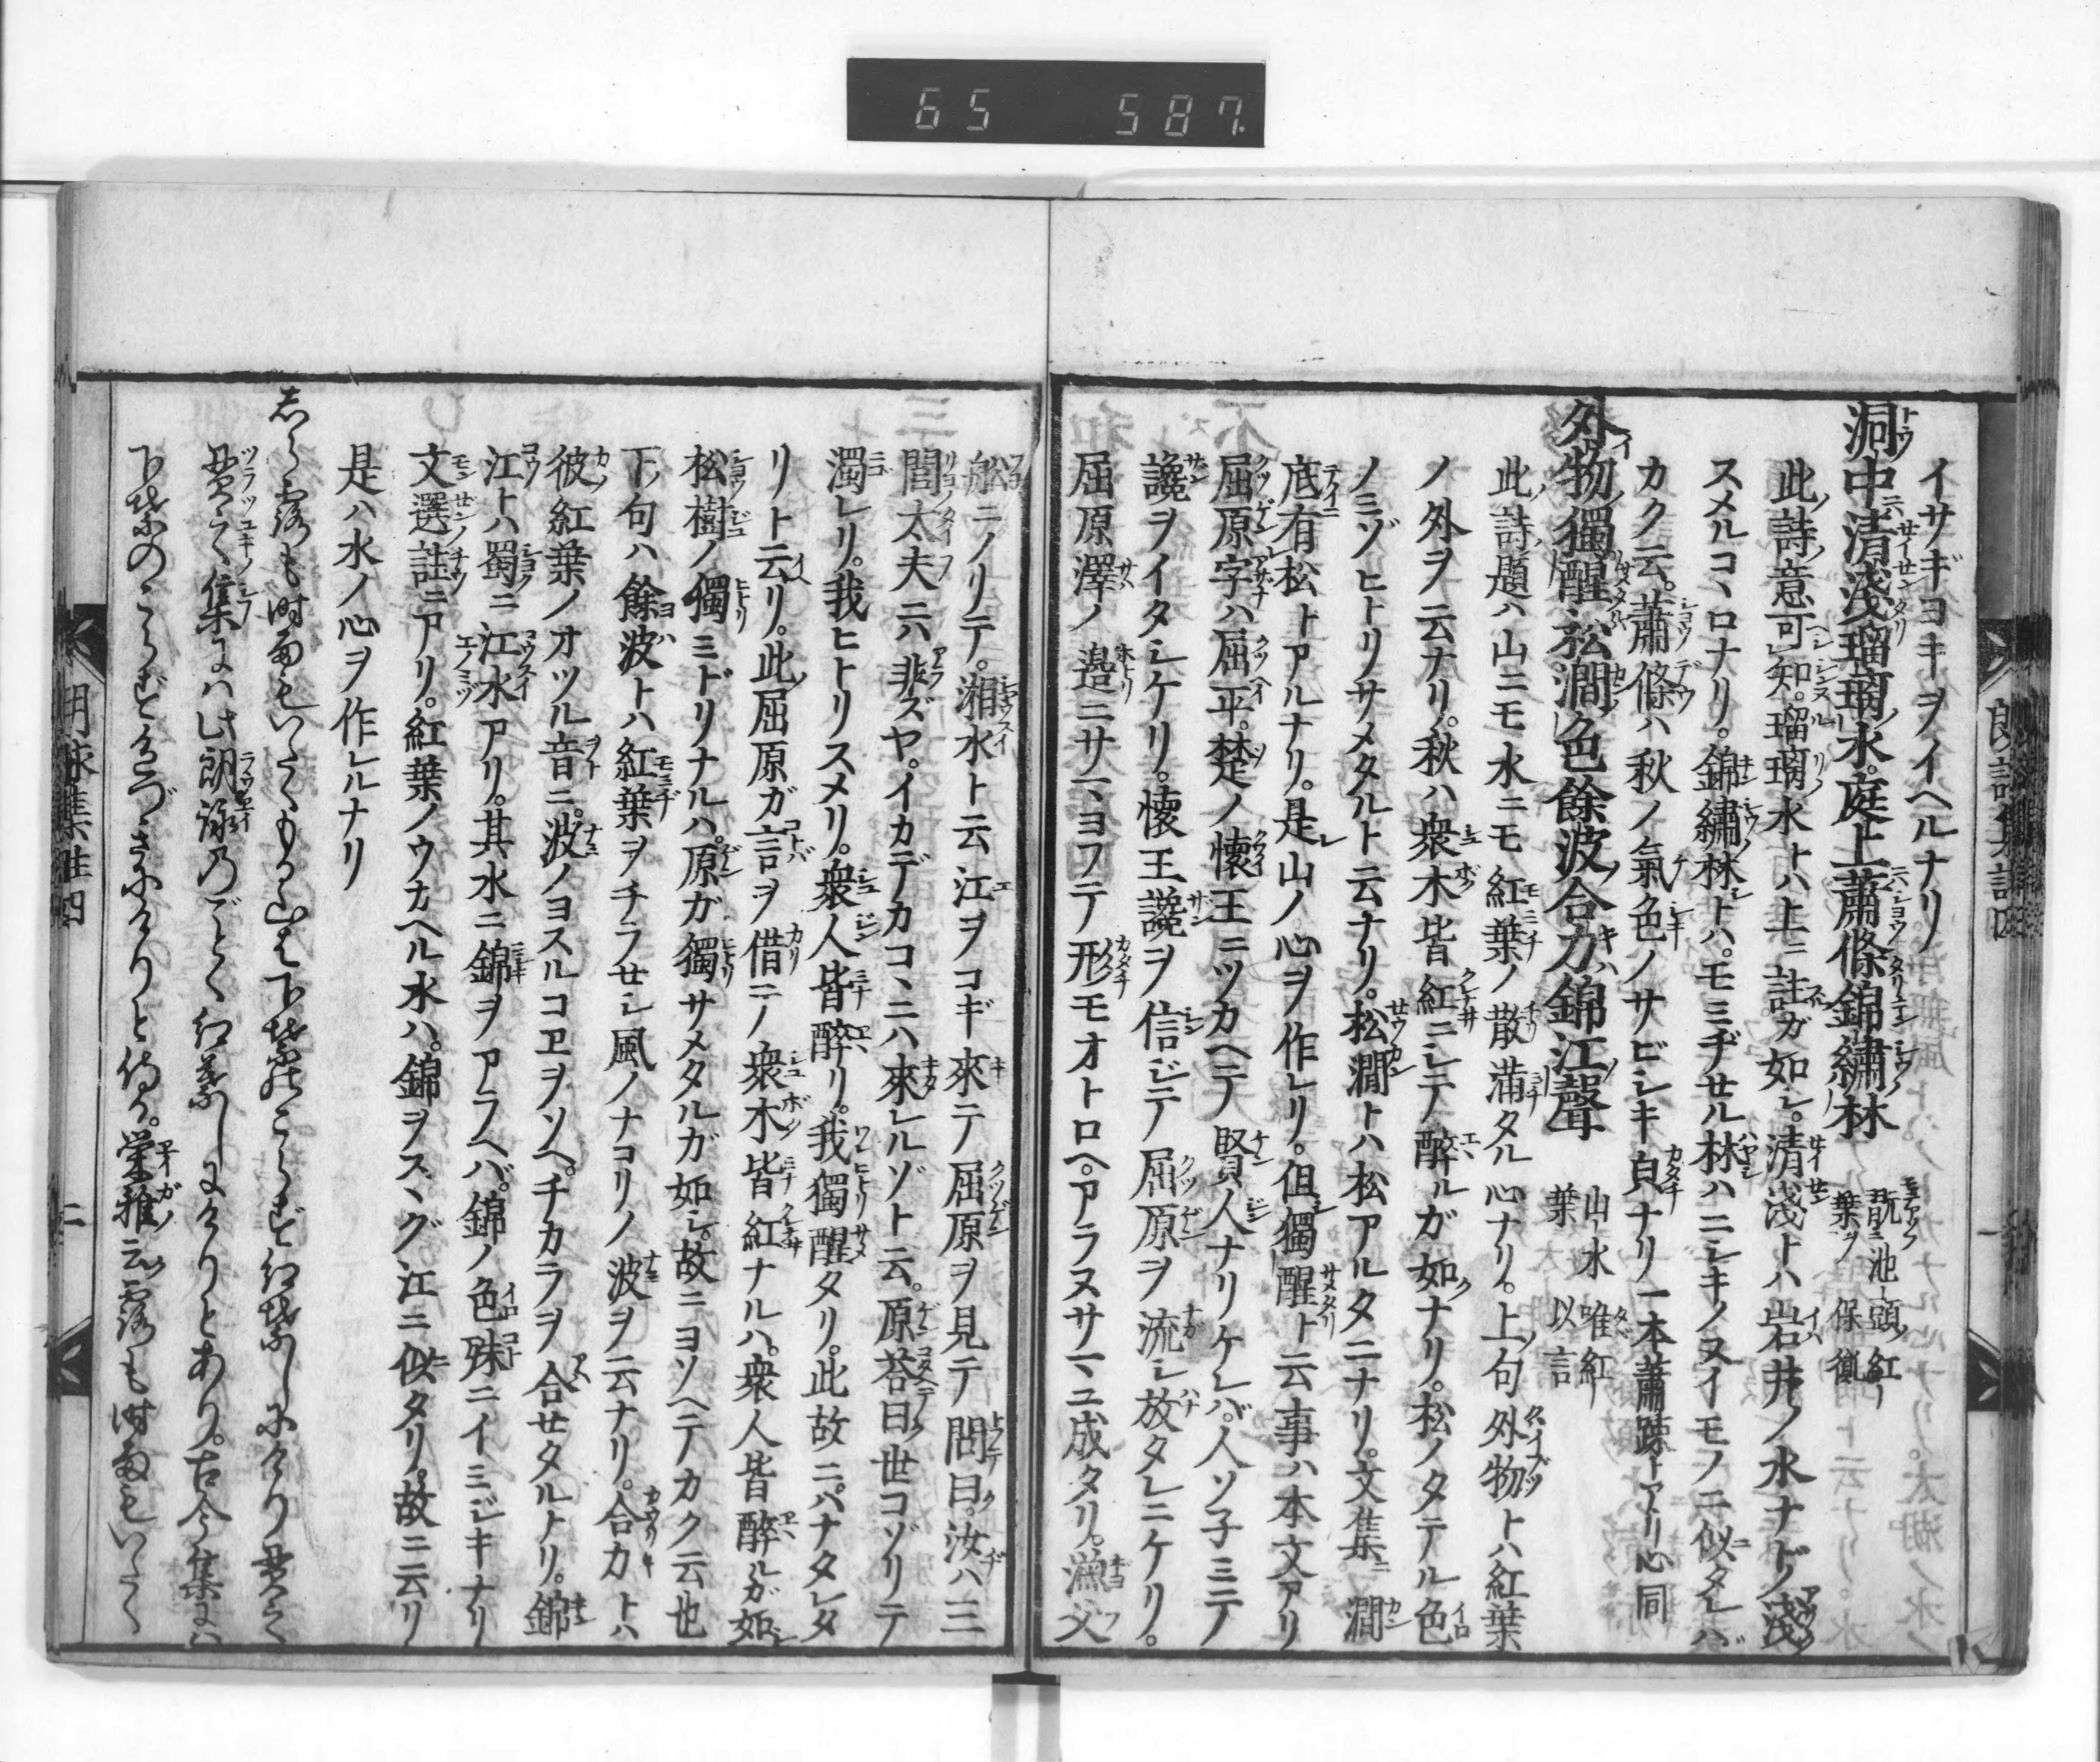 65 587.
イサギヨキヲイヘルナリ
洞中清淺瑠璃水。庭上蕭條錦繡林 翫池頭紅葉 保胤
此詩ノ意可知。瑠璃水トハ上ニ註ガ如シ。清淺トハ岩井ノ水ナドノ淺
スメルコヽロナリ。錦繡林トハ。モミヂセル林ハニシキノヌイモノニ似タレバ
カク云。蕭條ハ秋ノ氣色ノサビシキ皃ナリ一本蕭踈トアリ心同
外物獨醒松澗色餘波合力錦江聲 山水唯紅葉 以言
此詩題ハ山ニモ水ニモ紅葉ノ散滿タル心ナリ。上句外物トハ紅葉
ノ外ヲ云ナリ。秋ハ衆木皆紅ニシテ醉ルガ如クナリ。松ノタテル色
ノミゾヒトリサメタルト云ナリ。松澗トハ松アルタニナリ。文集ニ澗
底有松トアルナリ。是山ノ心ヲ作レリ。但獨醒ト云事ハ本文アリ
屈原字ハ屈平。楚ノ懷王ニツカヘテ賢人ナリケレバ。人ソ子ミテ
讒ヲイタシケリ。懷王讒ヲ信ジテ屈原ヲ流シ放タレニケリ。
屈原澤ノ邉ニサマヨフテ形モオトロヘ。アラヌサマニ成タリ。漁父
舩ニノリテ。湘水ト云江ヲコギ來テ屈原ヲ見テ問曰。汝ハ三
閭太夫ニ八非ズヤ。イカデカコヽニハ來レルゾト云。原荅曰世コゾリテ
濁レリ。我ヒトリスメリ。衆人皆醉リ。我獨醒タリ。此故ニハナタレタ
リト云リ。此屈原ガ言ヲ借ニノ衆木皆紅ナルハ。衆人皆醉ルガ如シ
松樹ノ獨ミドリナルハ。原ガ獨サメタルガ如シ。故ニヨソヘテカク云也
下ノ句ハ餘波トハ紅葉ヲチラセシ風ノナコリノ波ヲ云ナリ。合力トハ
彼紅葉ノオツル音ニ。波ノヨスルコヱヲソヘ。チカラヲ合セタルトナリ。錦
江トハ蜀ニ江水アリ。其水ニ錦ヲアラヘバ。錦ノ色殊ニイミジキナリ
文選註ニアリ。紅葉ノウカヘル水ハ。錦ヲスヽグ江ニ似タリ。故ニ云リ
是ハ水ノ心ヲ作レルナリ
志ら露も時雨もいたくもる山は下葉のこらず紅葉しにけり 貫之
貫之集には此朗詠のごとく紅葉しにけりとあり。古今集には
下葉のこらず色づきにけりと侍る。榮雅云露も時雨もいたく
朗詠集註四 二